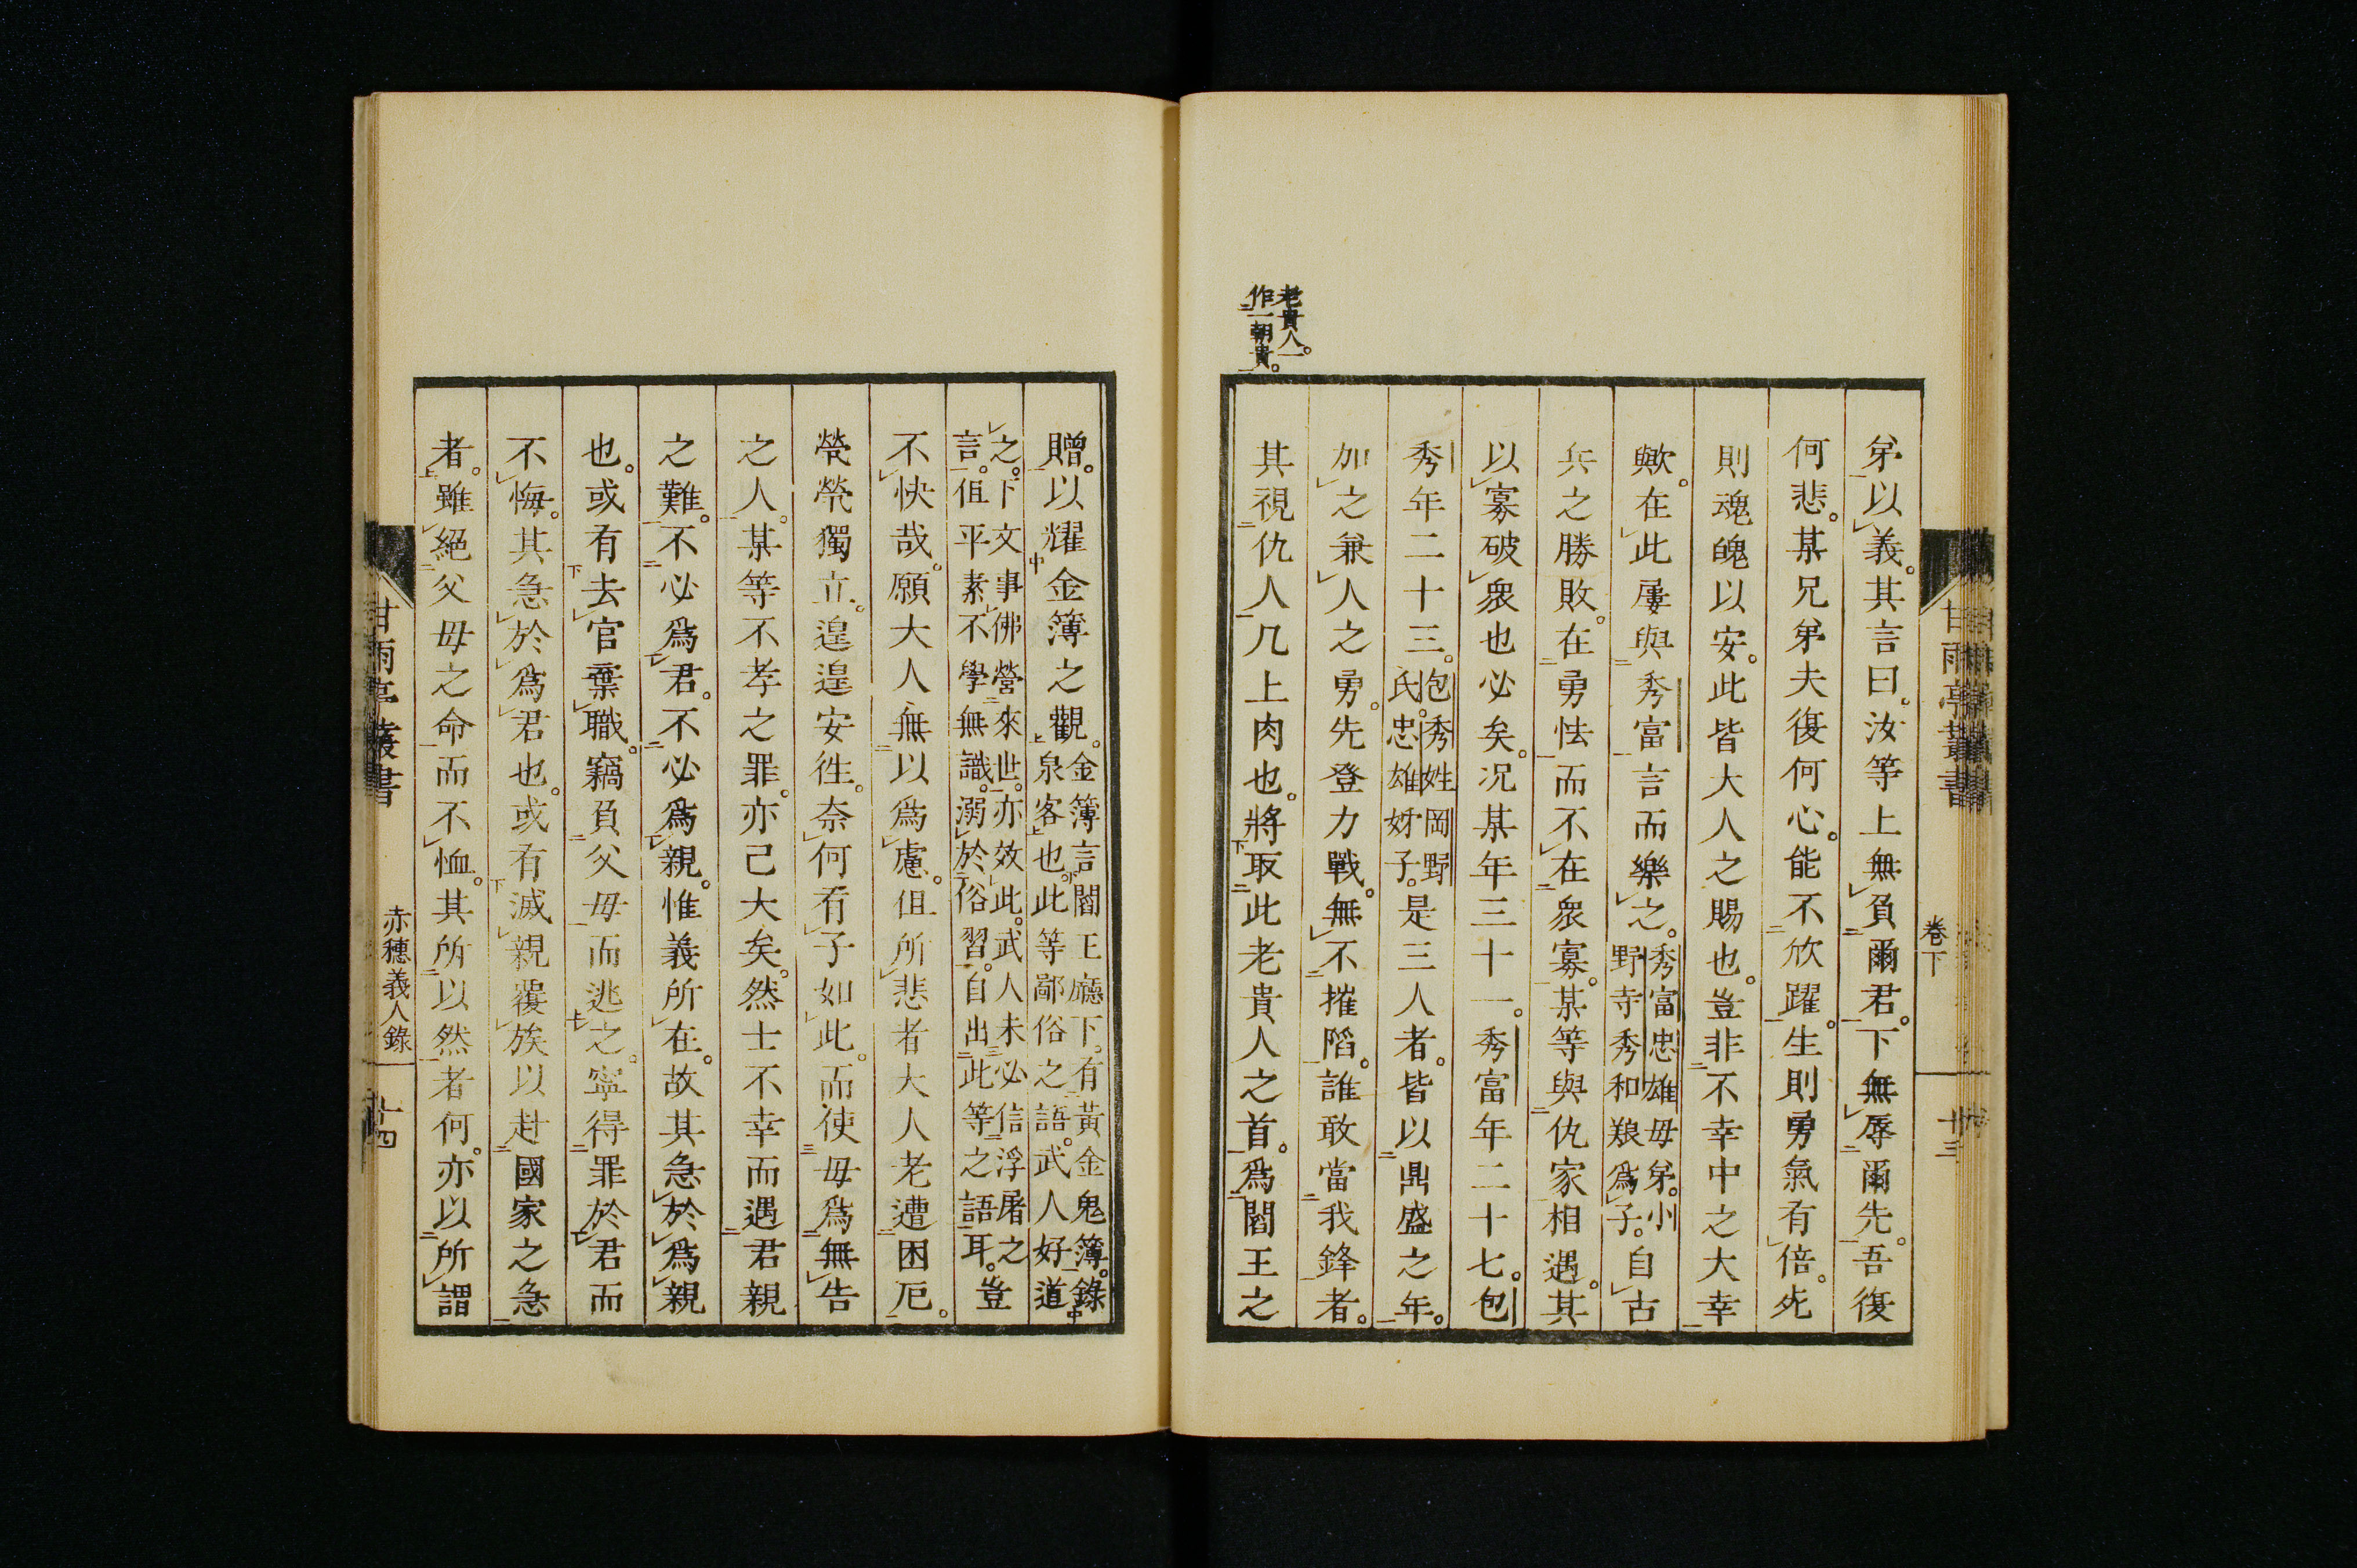 老貴人。一
作二朝貴一。
弟以義。其言曰。汝等上無負爾君。下無辱爾先。吾復
何悲。某兄弟夫復何心。能不欣躍。生則勇氣有倍。死
則魂魄以安。此皆大人之賜也。豈非不幸中之大幸
歟。在此屢與秀富言而樂之。秀富忠雄母弟。小野寺秀和娘爲子。自古
兵之勝敗。在勇怯而不在衆寡。某等與仇家相遇。其
以寡破衆也必矣。況某年三十一。秀富年二十七。包
秀年二十三。包秀姓岡野氏。忠雄妤子。是三人者。皆以鼎盛之年。
加之兼人之勇。先登力戰。無不摧陷。誰敢當我鋒者。
其視仇人几上肉也。將取此老貴人之首。爲閻王之
甘雨亭叢書
卷下
十三
贈。以耀金簿之觀。金簿言閻王廳下。有黃金鬼簿。錄泉客也。此等鄙俗之語。武人好道
之。下文事佛營來世。亦效此。武人未必信浮屠之言。但平素不學無識。溺於俗習。自出此等之語耳。豈
不快哉。願大人無以爲慮。但所悲者大人老遭困厄。
煢煢獨立。遑遑安徃。奈何有子如此。而使母爲無告
之人。某等不孝之罪。亦已大矣。然士不幸而遇君親
之難。不必爲君。不必爲親。惟義所在。故其急於爲親
也。或有去官棄職。竊負父母而逃之。寧得罪於君而
不悔。其急於爲君也。或有滅親覆族以赴國家之急
者。雖絕父母之命而不恤。其所以然者何。亦以所謂
甘雨亭叢書
赤穗義人錄
十四